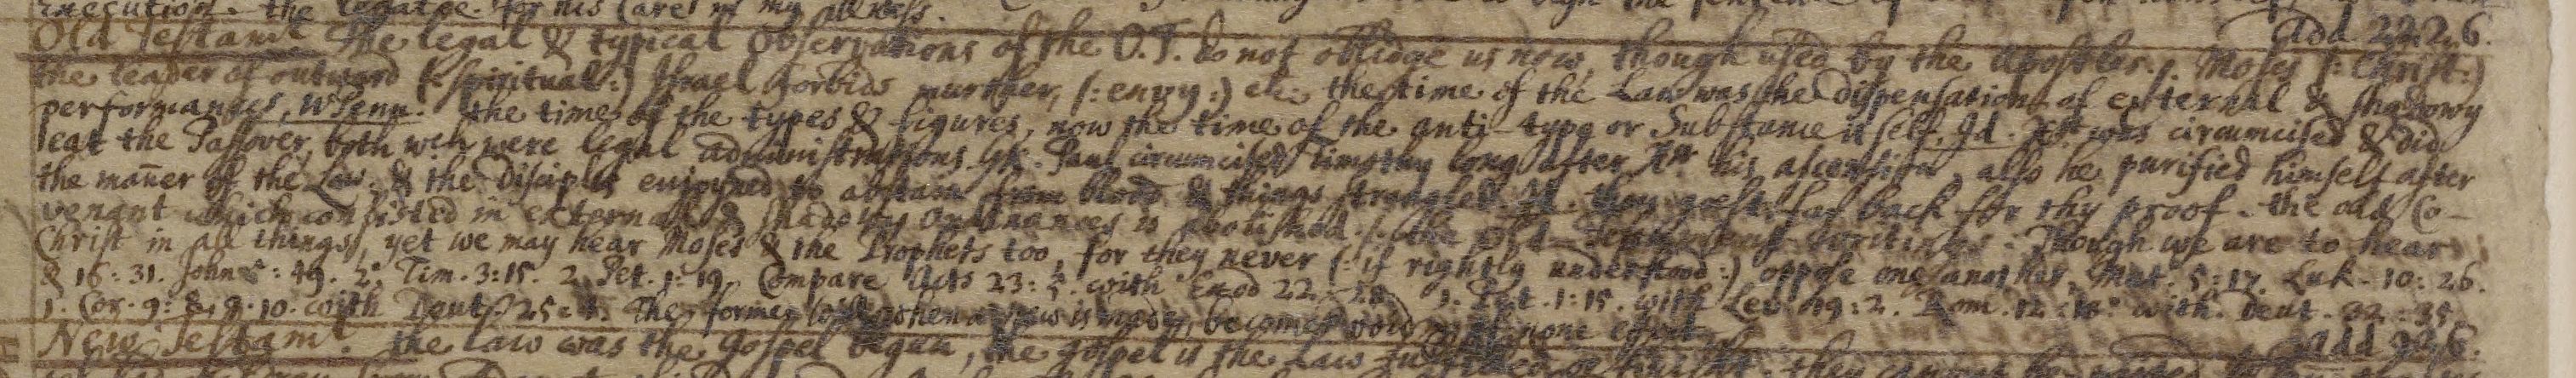 execution. the legatee for his care in my illness.
add 222.6.
Old Testamt. The legal & typical observations of the O.T. do not obliege us now, though used by the Apostles. /. Moses (: Christ:)
the leader of outward (: spiritual:) Israel forbids murther, (: envy :) etc. the time of the Law was the dispensation of external & shadowy
performances, WPenn. the time of the types & figures, now the time of the anti-type or Substance it self. Id. Xst was circumcised & did
eat the Passover, both wch were legal administrations. GK. Paul circumcised Timothy long after Xts his ascension, also he purified himself after
the mañer of the Law. & the Disciples enjoyned to abstain from blood & things strangled. Id. thou goest far back for thy proof. the old Co-
venant which consisted in external & shadowy Ordinances is abolished. /. the Old Testament writings. Though we are to hear
Christ in all things, yet we may hear Moses & the Prophets too, for they never (: if rightly understood :) oppose one another, Mat. 5:17. Luk. 10:26.
& 16:31. John 5:49. 2. Tim. 3:15. 2. Pet. 1:19. Compare Acts 23:5. with Exod 22:28. 1. Pet. 1:15. with Lev. 19:2. Rom. 12:18. with Deut. 32:35.
1. Cor. 9: 8,9.10. with Deut. 25:4. The former when a new is made, becomes void none effect.
add 326.
New Testamt. the Law was the Gospel begun, the Gospel is the Law